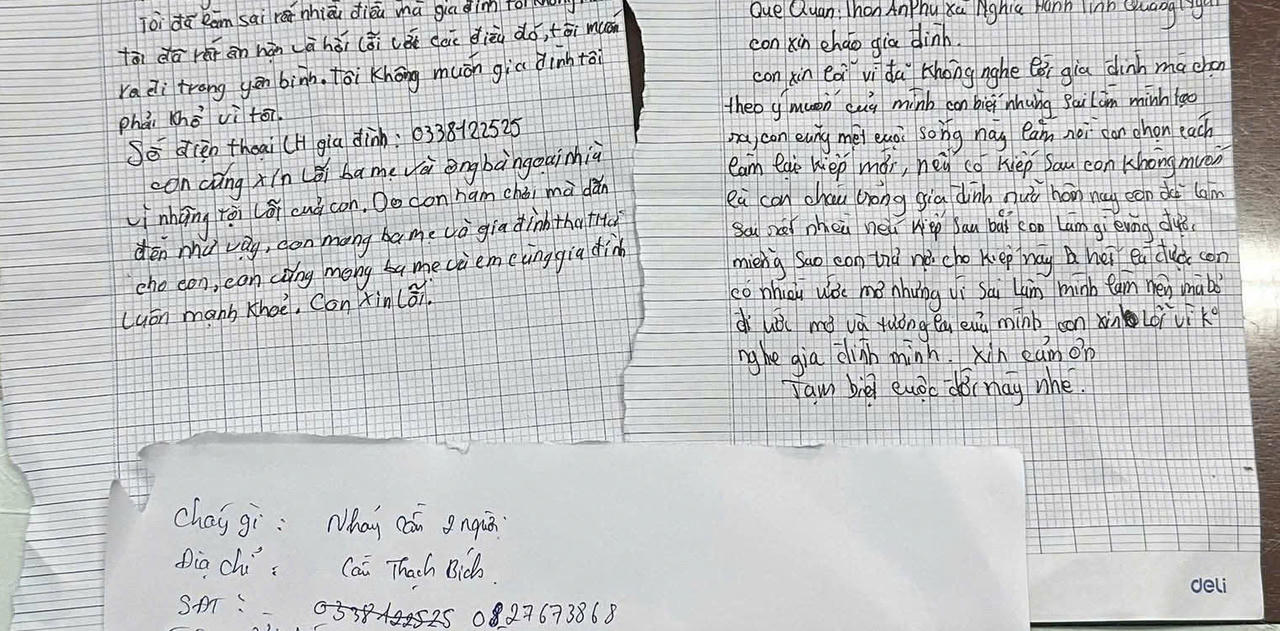 Tôi đã làm sai rất nhiều điều mà gia đình tôi không
tôi đã rất ân hận và hối lỗi với các điều đó, tôi muốn
ra đi trong yên bình. Tôi không muốn gia đình tôi
phải khổ vì tôi.
Số điện thoại LH gia đình : 0338122525
con cũng xin lỗi ba mẹ và ông bà ngoại nhiều
vì những tội lỗi của con. Do con ham chơi mà dẫn
đến như vậy, con mong ba mẹ và gia đình tha thứ
cho con, con cũng mong ba mẹ và em cùng gia đình
luôn mạnh khoẻ. Con xin lỗi.
Quê Quán: Thôn An Phú xã Nghĩa Hành tỉnh Quảng Ngãi
con xin chào gia đình.
con xin lỗi vì đã không nghe lời gia đình mà chọn
theo ý muốn của mình con biết những sai lầm mình tạo
ra, con cũng mệt cuộc sống này lắm rồi con chọn cách
làm lại kiếp mới, nếu có kiếp sau con không muốn
là con cháu trong gia đình nữa hôm nay con đã làm
sai rất nhều nếu kiếp sau bắt con làm gì cũng được
miễng sao con trả nợ cho kiếp này là hết là được con
có nhiều ước mơ nhưng vì sai lầm mình làm nên mà bỏ
đi ước mơ và tương lai của mình con xin lỗi vì ko
nghe gia đình mình. xin cảm ơn
Tạm biệt cuộc đời này nhé.
Cháy gì : Nhảy cầu 2 người
Địa chỉ : Cầu Thạch Bích
SĐT : 0338122525 0827673868
deli